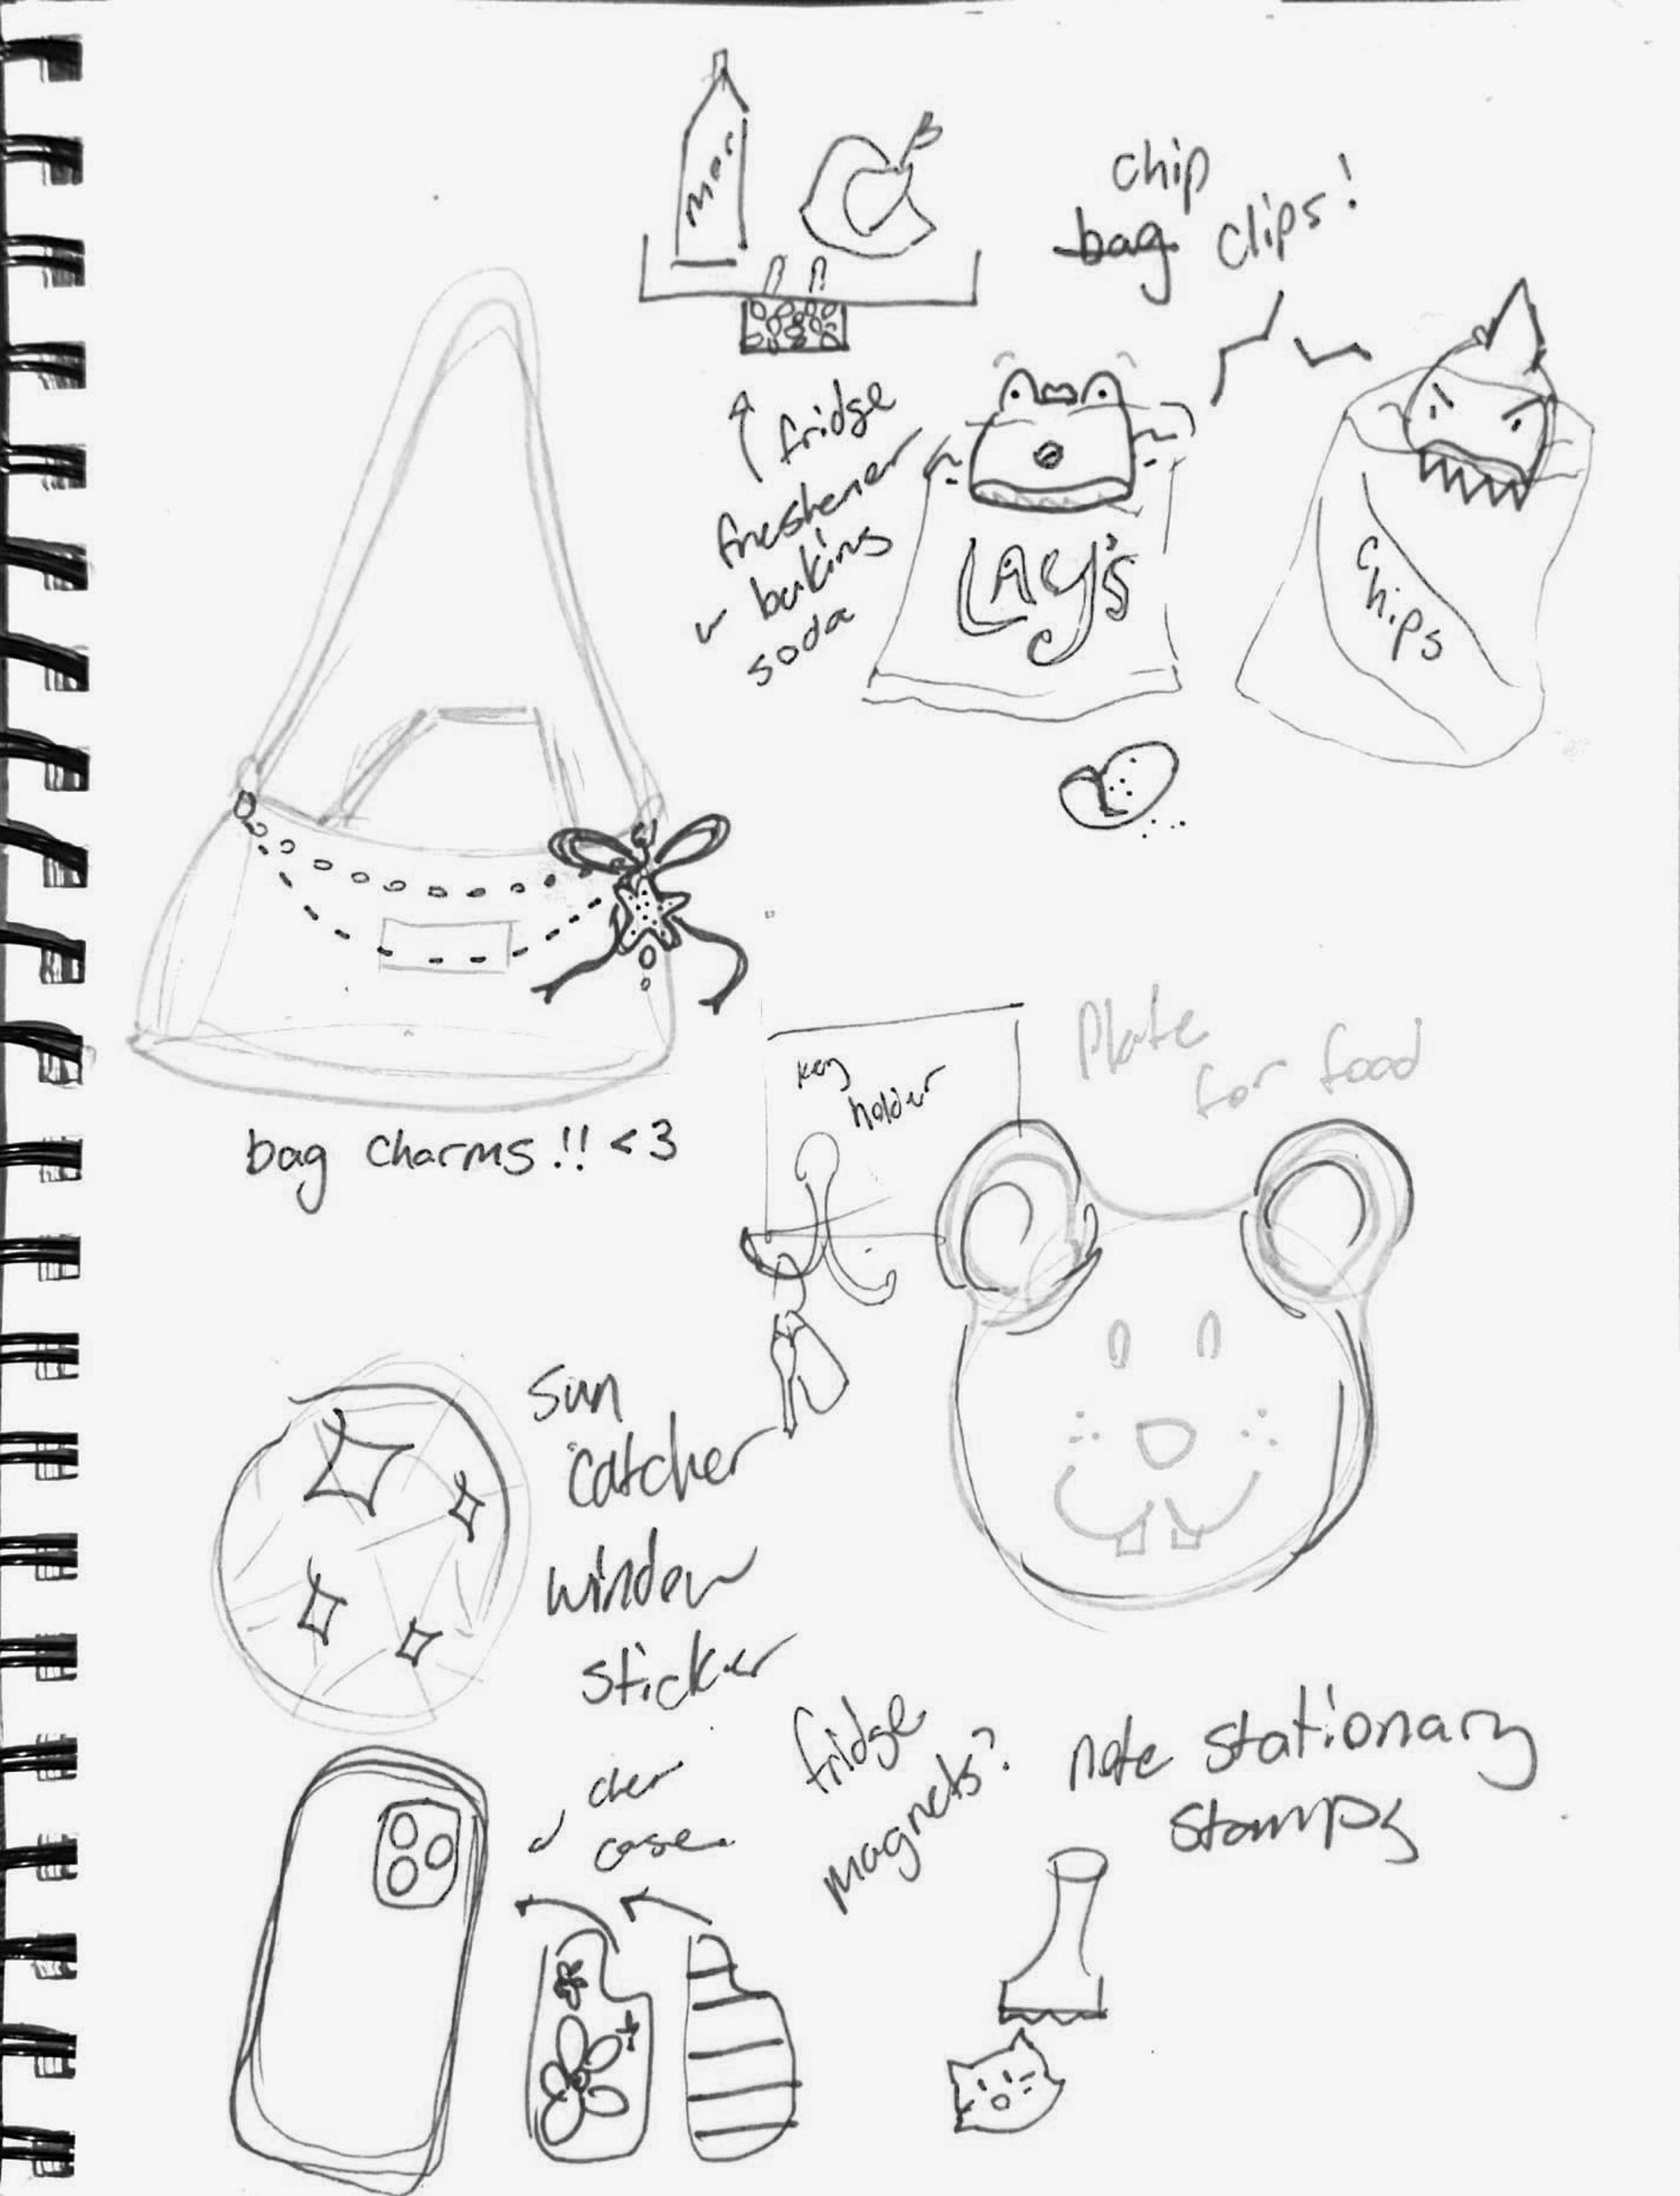 chip
bag clips!
fridge
freshener
w baking
soda
Lay's
Chips
bag charms!! <3
key
holder
Plate
for food
sun
catcher
window
sticker
fridge
magnets?
note stationary
stamps
case